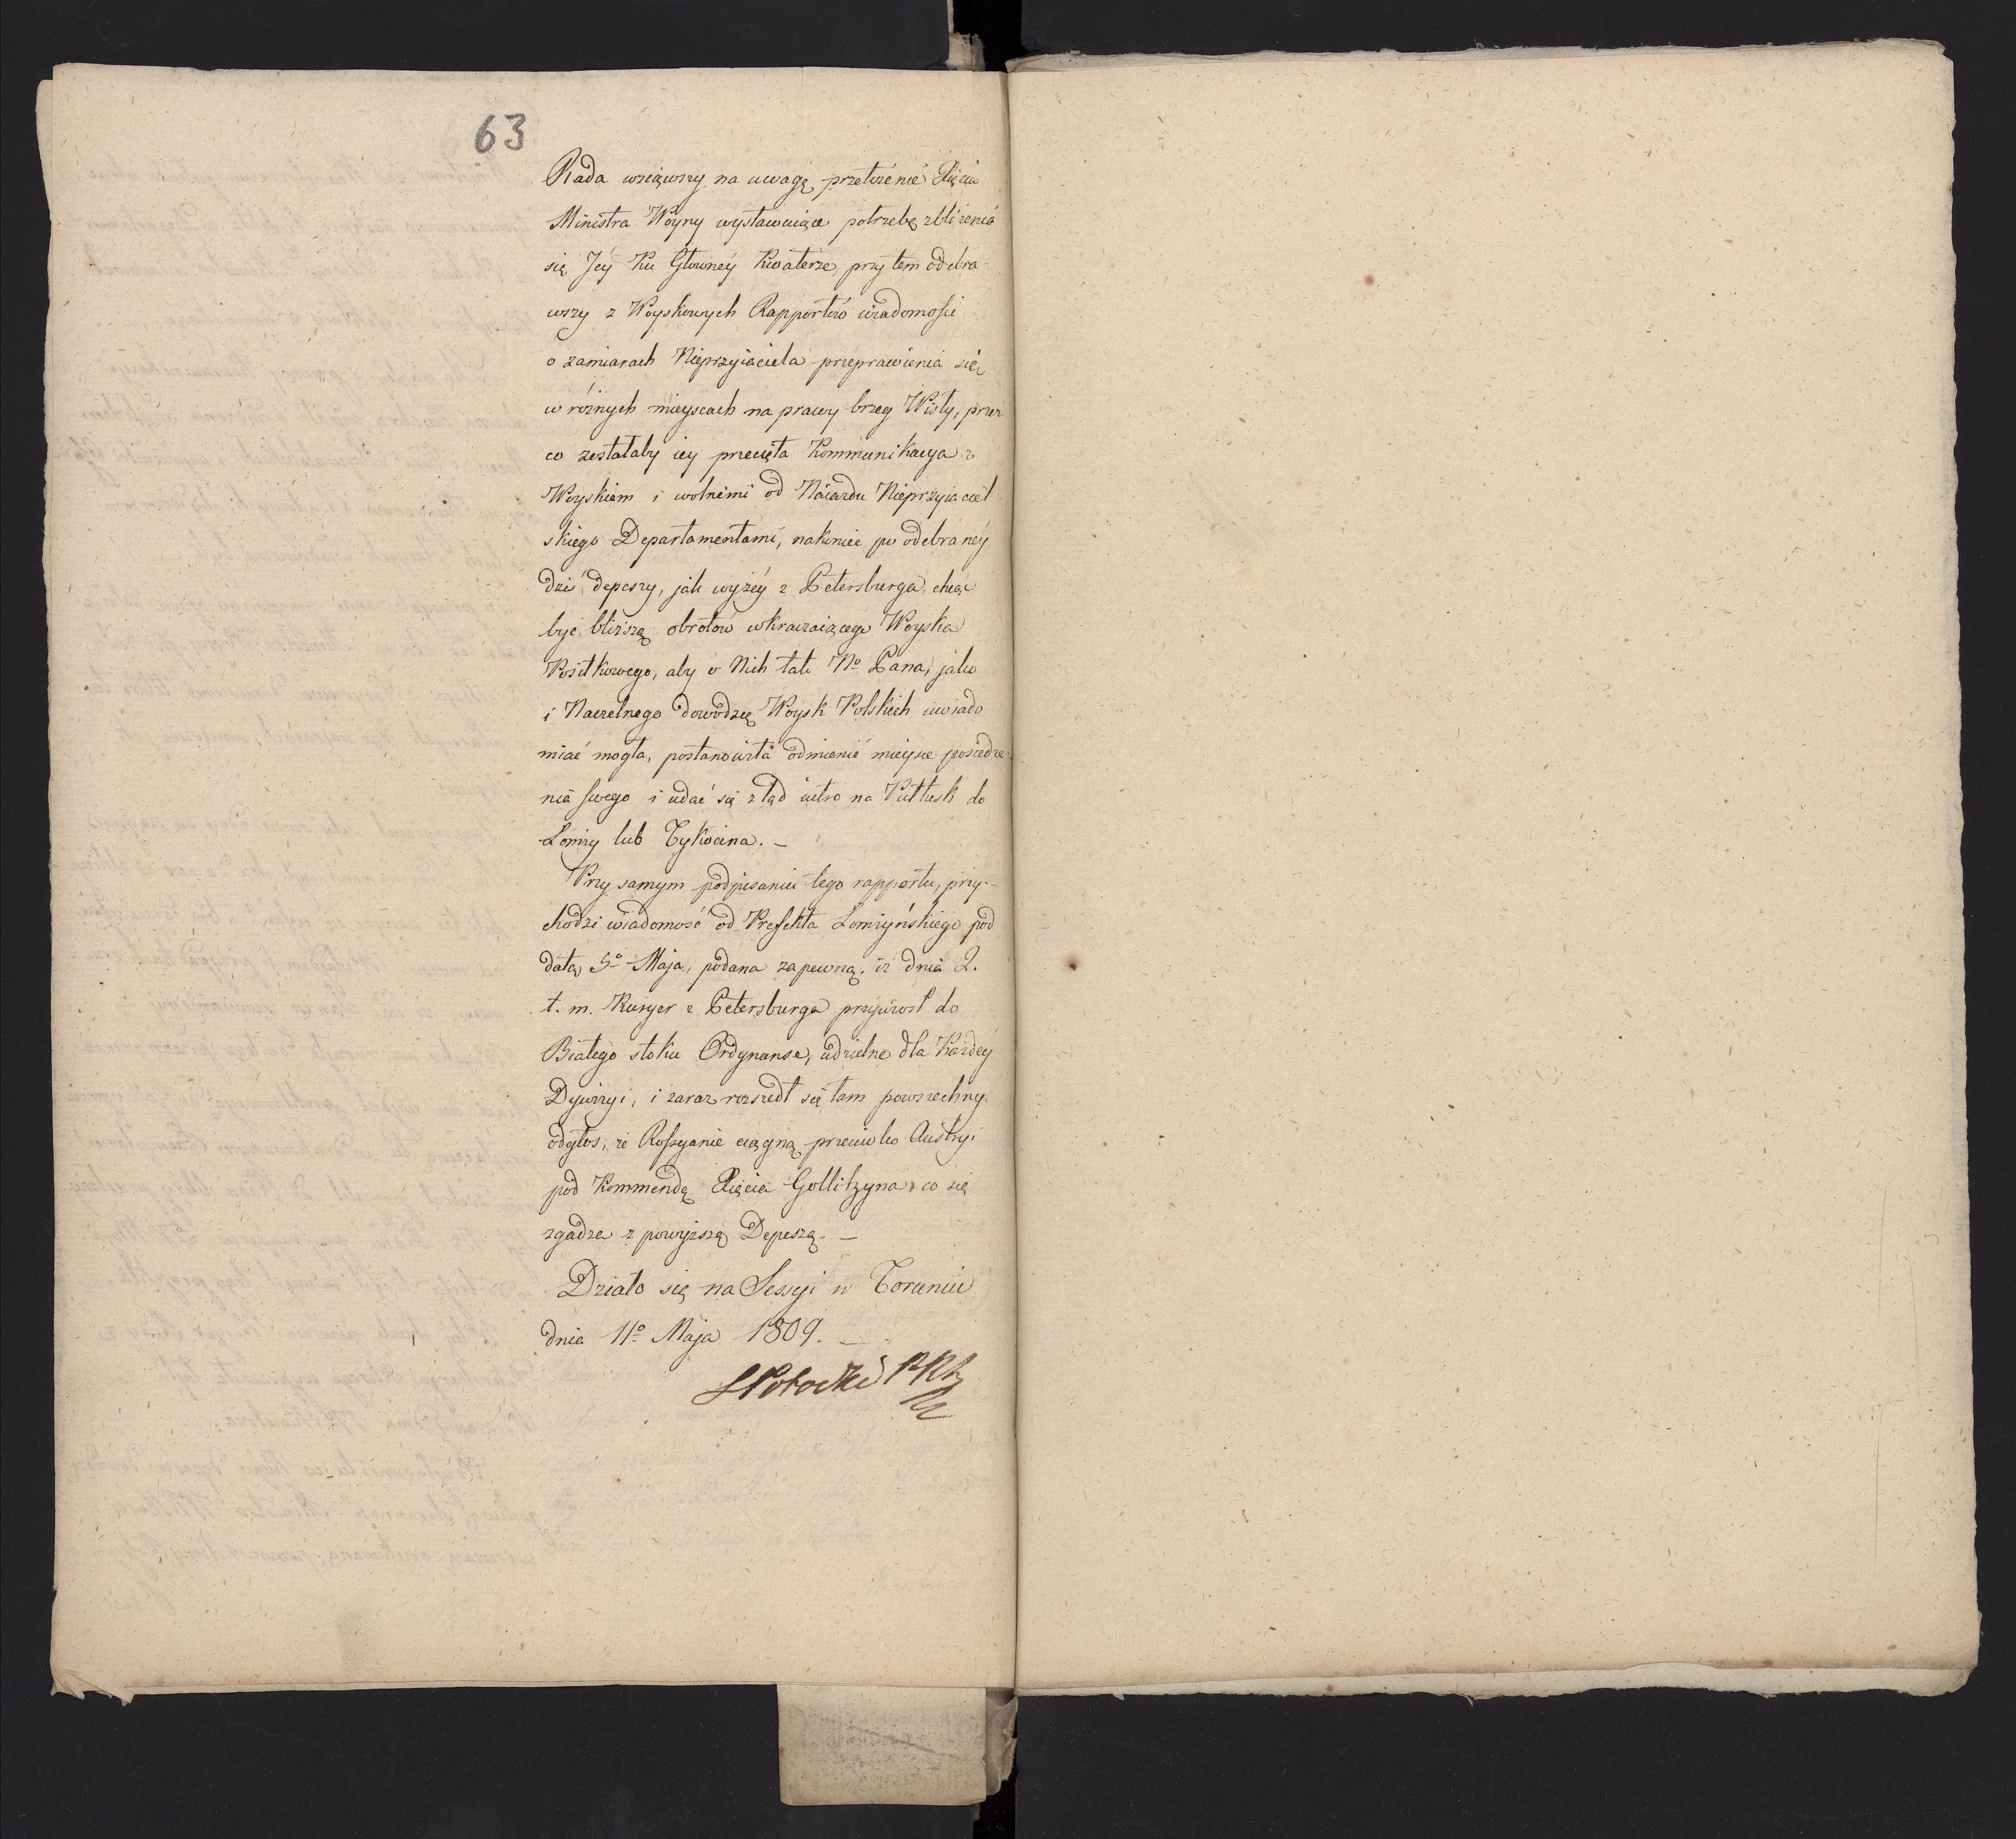 63
Rada wziąwszy na uwagę przełożenie Xięcia
Ministra Woyny wystawuiące potrzebę zbliżenia
się Jéy Ku Głowney Kwaterze, przytem odebra-
wszy z Woyskowych Rapportów wiadomości
o zamiarach Nieprzyiaciela przeprawienia się
w różnych mieyscach na prawy brzeg Wisły, przez
co zostałaby iey przecięta Kommunikacya z
Woyskiem i wolnémi od Naiazdu Nieprzyiaciel-
skiego Departamentami, nakoniec po odebranéy
dziś depeszy, jak wyżéy z Petersburga, chcąc
być bliższą obrotów wkraczaiącego Woyska
Posiłkowego, aby o Nich tak No. Pana, jako
i Naczelnego dowódzcę Woysk Polskich uwiado
miać mogła, postanowiła odmienić mieysce posiedze-
nia swego i udać się ztąd iutro na Pułtusk do
Łomży lub Tykocina. -
Przy samym podpisaniu tego rapportu, przy-
chodzi wiadomość od Prefekta Łomżyńskiego pod
datą 5o Maja, podana za pewną, iż dnia 2.
t. m. Kuryer z Petersburga przywiozł do
Białego stoku Ordynanse, udzielne dla Każdéy
Dywizyi, i zaraz rozszedł się tam powszechny
odgłos, że Rossyanie ciągną przeciwko Austryi
pod Kommendą Xięcia Gollitzyna, co się
zgadza z powyższą Depeszą. -
Działo się na Sessyi w Toruniu
dnia 11o Maja 1809. -
SPotocki